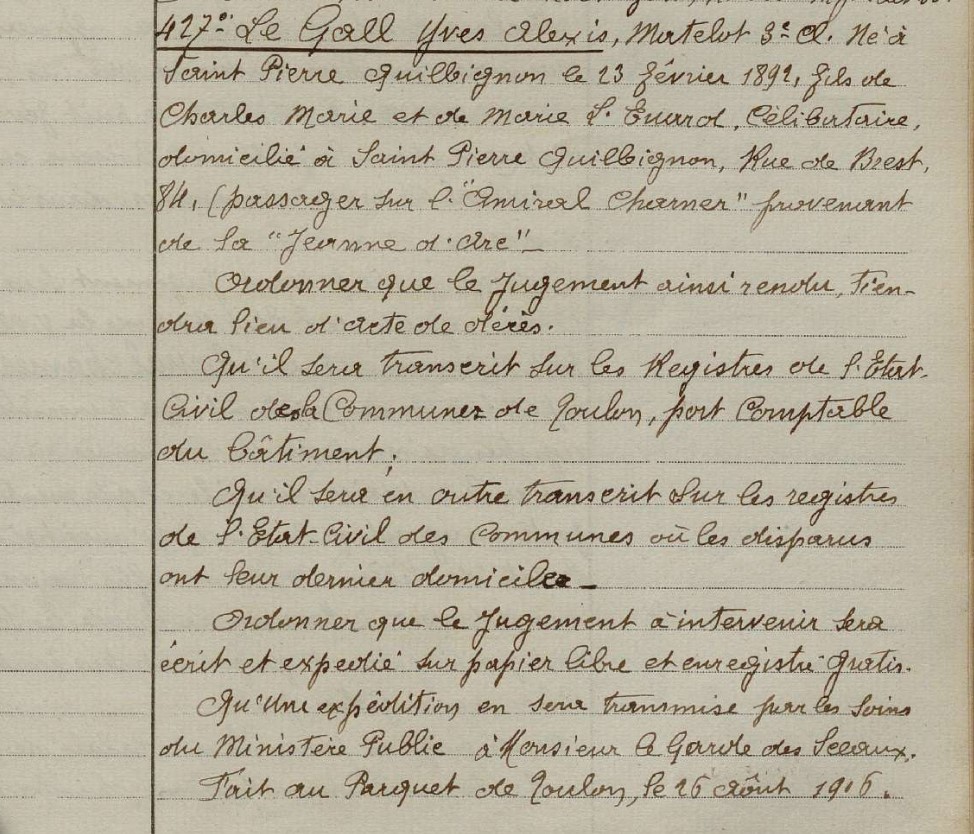 427º- Le Gall Yves Alexis, Matelot 3e Cl. Né à
Saint Pierre Quilbignon le 23 février 1892, fils de
Charles Marie et de Marie L. Evarod, Célibataire,
domicilié à Saint Pierre Quilbignon, Rue de Brest,
84, (passager sur l'"Amiral Charner" provenant
de la "Jeanne d'Arc" _
Ordonner que le Jugement ainsi rendu, tien-
dra lieu d'acte de décès.
Qu'il sera transcrit sur les Registres de l'Etat-
Civil de la Commune de Toulon, port Comptable
du bâtiment;
Qu'il sera en outre transcrit sur les registres
de l'Etat-Civil des Communes où les disparus
ont leur dernier domicile _
Ordonner que le Jugement à intervenir sera
écrit et expedié sur papier libre et enregistré gratis.
Qu'Une expédition en sera transmise par les soins
du Ministère Public à Monsieur le Garde des Sceaux.
Fait au Parquet de Toulon, le 26 Août 1916.